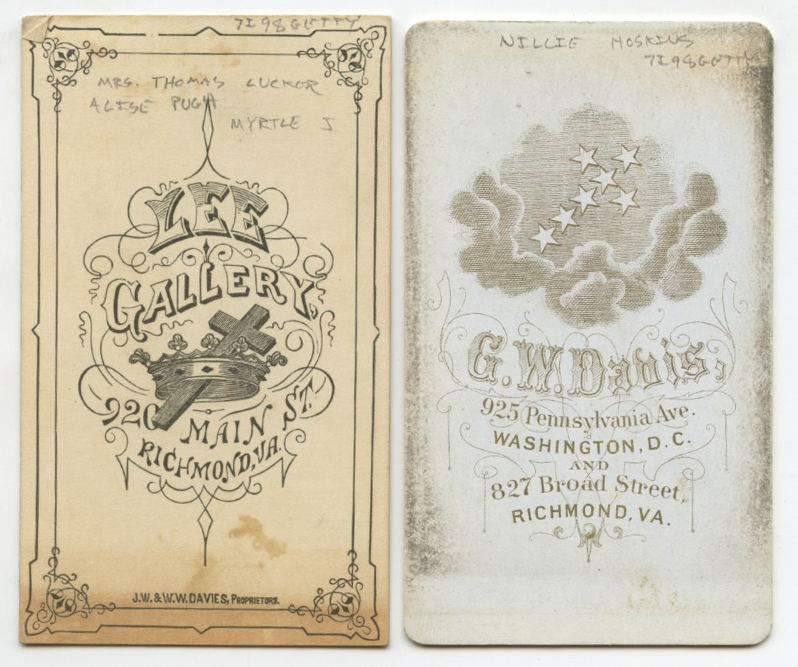 7198GETTY
MRS. THOMAS LUCKER
ALISE PUGH
MYRTLE J
LEE
GALLERY,
920 MAIN ST.
RICHMOND, VA.
J.W. & W.W. DAVIES, PROPRIETORS.
NILLIE HOSKINS
7198GETTY
G.W. Davis,
925 Pennsylvania Ave.
WASHINGTON, D.C.
AND
827 Broad Street,
RICHMOND, VA.